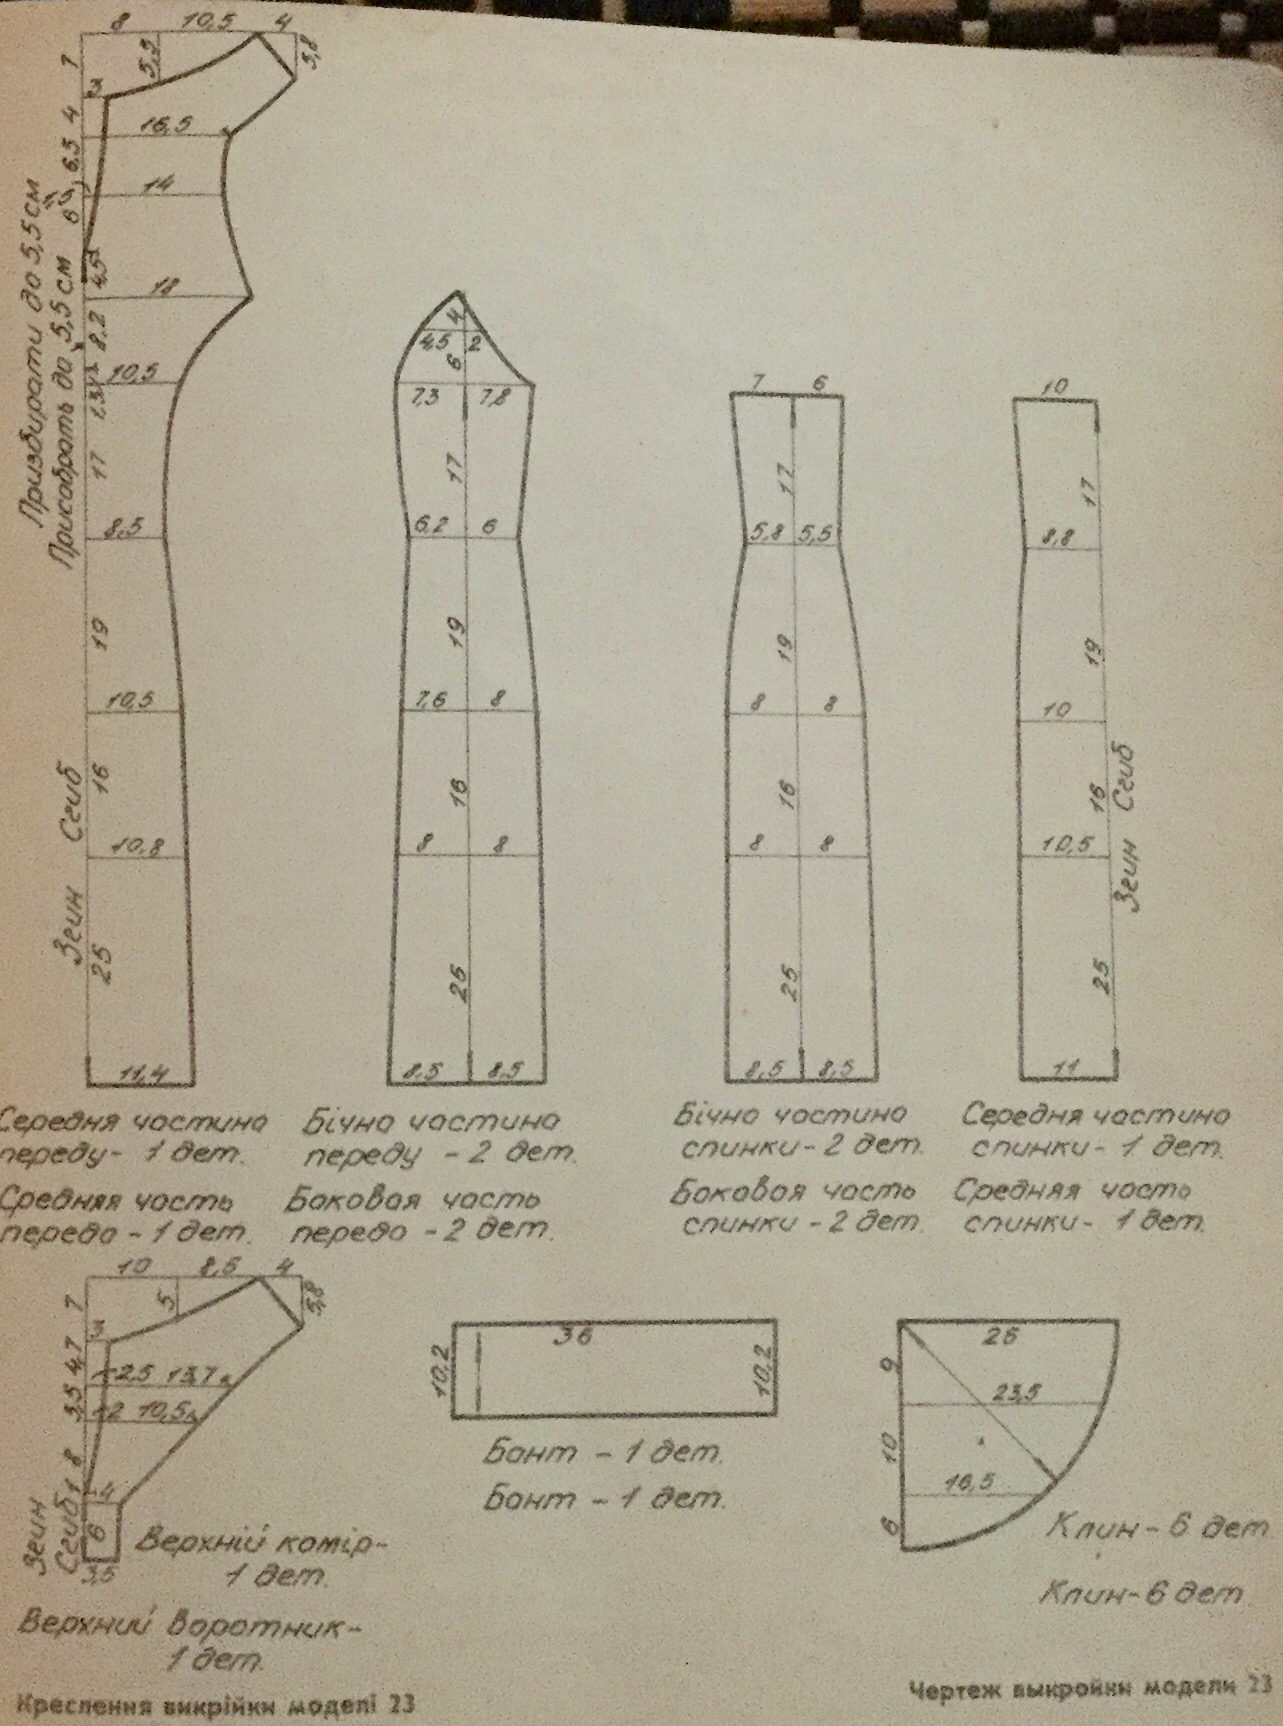 8 10,5 4
7 5,5 5,8
3
4 16,5
6,5 14
6
4,5 18
8,2
10,5
1,3
17
8,5
19
10,5
16
10,8
25
11,4
Призбирати до 5,5 см
Присобрать до 5,5 см
Згин Сгиб
4
4,5 2
6
7,3 7,8
17
6,2 6
19
7,6 8
16
8 8
25
8,5 8,5
7 6
17
5,8 5,5
19
8 8
16
8 8
25
8,5 8,5
10
17
8,8
19
10
16
10,5
25
11
Згин Сгиб
Середня частина
переду- 1 дет.
Средняя часть
переда - 1 дет.
Бічна частина
переду - 2 дет.
Боковая часть
переда - 2 дет.
Бічна частина
спинки - 2 дет.
Боковая часть
спинки - 2 дет.
Середня частина
спинки - 1 дет.
Средняя часть
спинки - 1 дет.
10 8,5 4
7 5 5,8
3
4,7
2,5 13,7
3,5 2 10,5
8
1 4
6
3,5
Згин
Сгиб
Верхній комір-
1 дет.
Верхний воротник-
1 дет.
36
10,2 10,2
Бант - 1 дет.
Бант - 1 дет.
26
9
23,5
10
16,5
6
Клин - 6 дет
Клин - 6 дет
Креслення викрійки моделі 23
Чертеж выкройки модели 23